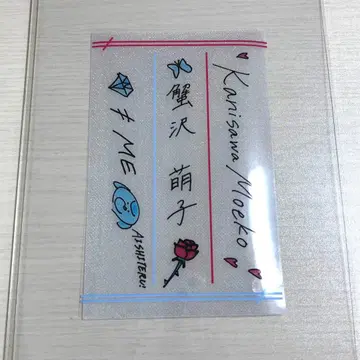 Kanisawa Moeko
蟹沢 萌子
≠ ME
AISHITERU!